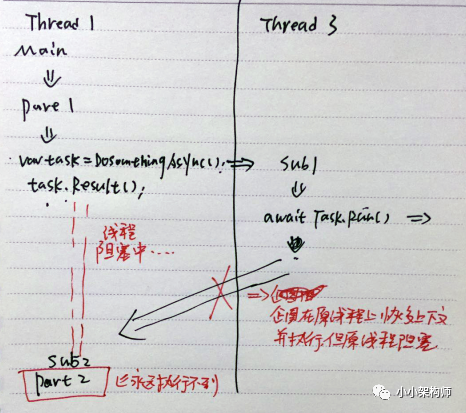 Thread 1
Main
⇓
part 1
⇓
var task = DosomethingAsync(); ⇒
task.Result();
线程
阻塞中....
sub2
part 2
永远执行不到
Thread 3
sub1
⇓
await Task.Run() ⇒
⇒
企图在原线程上恢复上下文
并执行但原线程阻塞
小小架构师